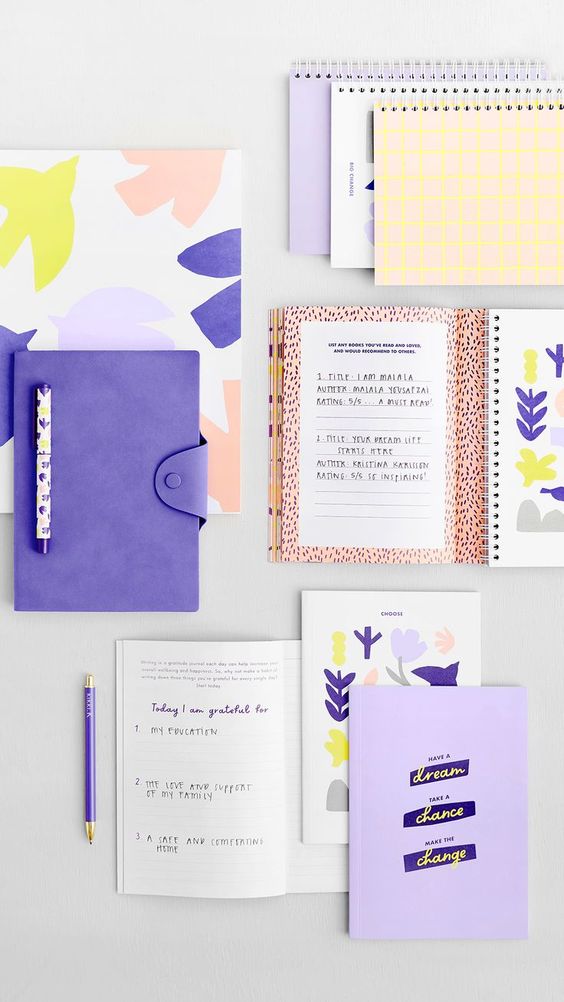 BIG CHANGE
LIST ANY BOOKS YOU'VE READ AND LOVED,
AND WOULD RECOMMEND TO OTHERS.
1. TITLE: I AM MALALA
AUTHOR: MALALA YOUSAFZAI
RATING: 5/5 ... A MUST READ!
2. TITLE: YOUR DREAM LIFE
STARTS HERE
AUTHOR: KRISTINA KARLSSON
RATING: 5/5 SO INSPIRING!
CHOOSE
Writing in a gratitude journal each day can help increase your
overall wellbeing and happiness. So, why not make a habit of
writing down three things you're grateful for every single day?
Start today.
Today I am grateful for
1. MY EDUCATION
2. THE LOVE AND SUPPORT
OF MY FAMILY
3. A SAFE AND COMFORTING
HOME
HAVE A
dream
TAKE A
chance
MAKE THE
change